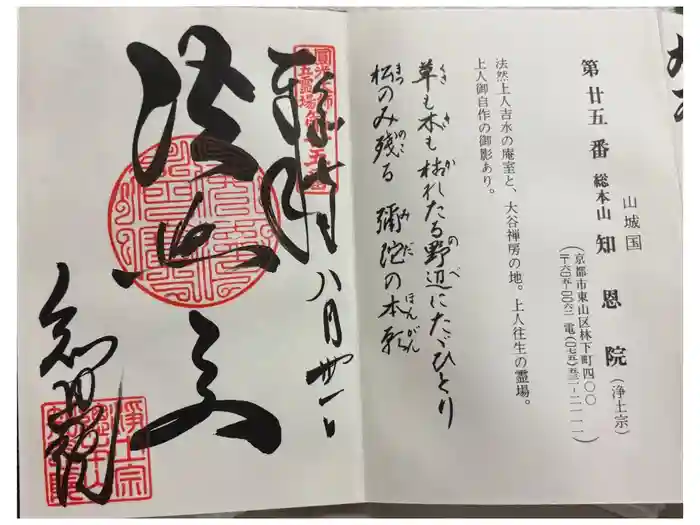 山城国
第廿五番 総本山 知恩院(浄土宗)
(京都市東山区林下町四〇〇
〒六〇五-〇〇六二 電(〇七五)五三一-二一一一)
法然上人吉水の庵室と、大谷禅房の地。上人往生の霊場。
上人御自作の御影あり。
草も木も枯れたる野辺にたゞひとり
松のみ残る 彌陀の本願
八月卅一日
知恩院
浄土宗